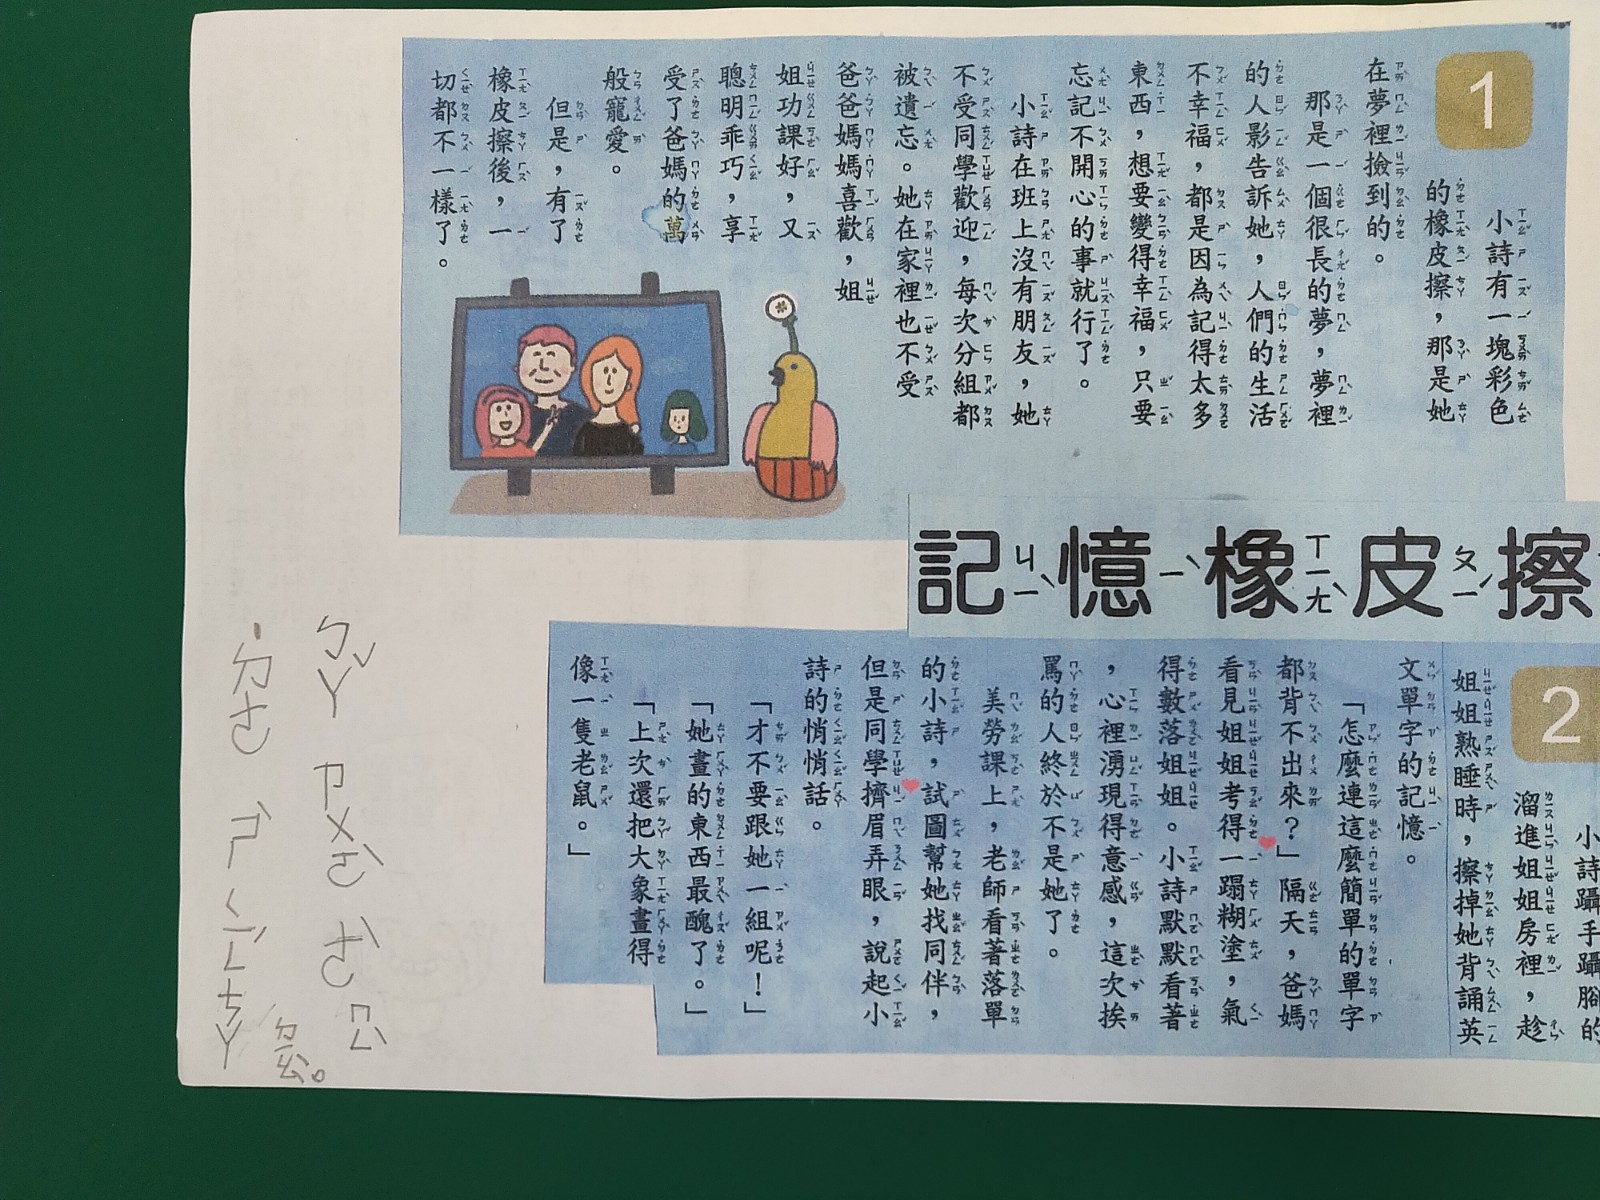 1
小詩有一塊彩色
的橡皮擦，那是她
在夢裡撿到的。
那是一個很長的夢，夢裡
的人影告訴她，人們的生活
不幸福，都是因為記得太多
東西，想要變得幸福，只要
忘記不開心的事就行了。
小詩在班上沒有朋友，她
不受同學歡迎，每次分組都
被遺忘。她在家裡也不受
爸爸媽媽喜歡，姐
姐功課好，又
聰明乖巧，享
受了爸媽的萬
般寵愛。
但是，有了
橡皮擦後，一
切都不一樣了。
記憶橡皮擦
2
小詩躡手躡腳的
溜進姐姐房裡，趁
姐姐熟睡時，擦掉她背誦英
文單字的記憶。
「怎麼連這麼簡單的單字
都背不出來？」隔天，爸媽
看見姐姐考得一蹋糊塗，氣
得數落姐姐。小詩默默看著
，心裡湧現得意感，這次挨
罵的人終於不是她了。
美勞課上，老師看著落單
的小詩，試圖幫她找同伴，
但是同學擠眉弄眼，說起小
詩的悄悄話。
「才不要跟她一組呢！」
「她畫的東西最醜了。」
「上次還把大象畫得
像一隻老鼠。」